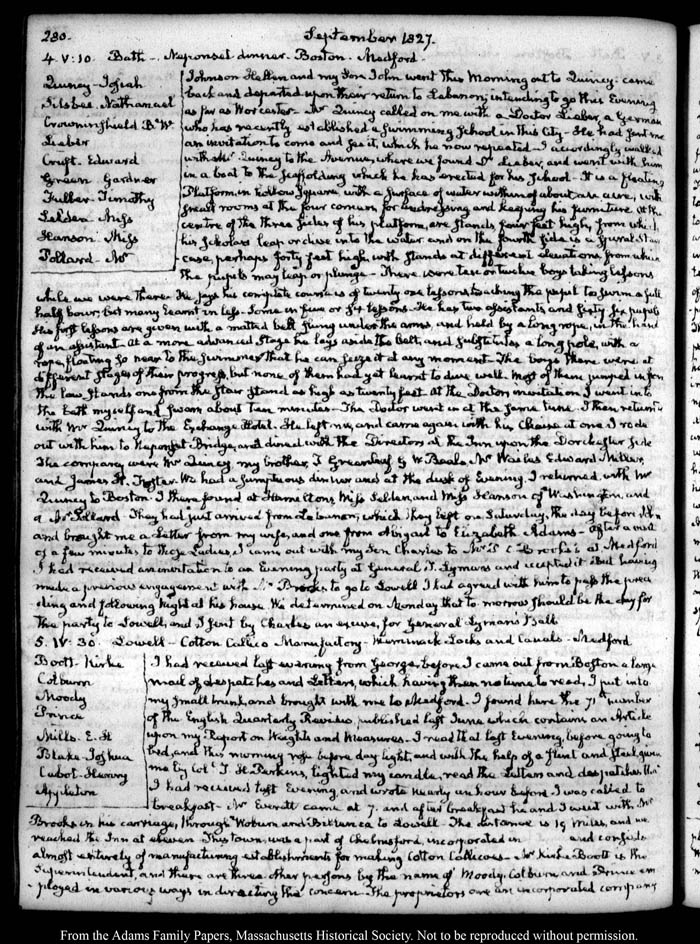 280.
September 1827.
4. V: 10. Bath - Neponset dinner. Boston - Medford -
Quincy - Josiah
Silsbee. Nathanael
Crowninshield B. W.
Lieber
Cruft. Edward
Green Gardner
Fuller Timothy
Selden Miss
Hanson. Miss
Pollard - Mr
Johnson Hellen and my Son John went this Morning out to Quincy: came
back and departed upon their return to Lebanon; intending to go this Evening
as far as Worcester - Mr Quincy called on me with a Doctor Lieber, a German
who has recently established a Swimming School in this City - He had sent me
an invitation to come and see it, which he now repeated - I accordingly walked
with Mr Quincy to the Avenue, where we found Dr Lieber, and went with him
in a boat to the scaffolding which he has erected for his School - It is a floating
Platform, in hollow Square, with a surface of water within of about an acre, with
small rooms at the four corners for undressing and keeping his furniture. At the
centre of the three sides of his platform, are stands four feet high, from which
his scholars leap or dive into the water and on the fourth side is a spiral stair
case, perhaps forty feet high, with stands at different elevations from which
the pupils may leap or plunge - There were ten or twelve boys taking lessons
while we were there. He says his complete course is of twenty one lessons teaching the pupil to swim a full
half hour; but many learnt in less. Some in five or six lessons. He has two assistants and sixty six pupils
His first lessons are given with a matted belt slung under the arms, and held by a long rope, in the hand
of an assistant - At a more advanced stage he lays aside the belt, and substitutes a long pole, with a
rope floating so near to the swimmer that he can seize it at any moment. The boys there were at
different stages of their progress, but none of them had yet learnt to dive well. Most of them jumped in from
the low stands one from the stair stand as high as twenty feet. At the Doctor's invitation I went into
the bath myself and swam about ten minutes - The Doctor went in at the same time. I then returned
with Mr Quincy to the Exchange Hotel. He left me, and came again with his Chaise at one I rode
out with him to Neponset Bridge, and dined with the Directors at the Inn upon the Dorchester side
The company were Mr Quincy, my brother, T Greenleaf G W Beale Mr Wailes Edward Miller,
and James H. Foster. We had a sumptuous dinner and at the dusk of Evening I returned with Mr
Quincy to Boston. I there found at Hamilton's, Miss Selden, and Miss Hanson of Washington, and
a Mr Pollard. They had just arrived from Lebanon, which they left on Saturday, the day before John
and brought me a Letter from my wife, and one from Abigail to Elizabeth Adams - After a visit
of a few minutes to these Ladies, I came out with my Son Charles to Mr P C Brooks's at Medford
I had received an invitation to an Evening party at General T. Lyman's and accepted it but having
made a previous engagement with Mr Brooks, to go to Lowell I had agreed with him to pass the prece
ding and following Night at his house. We determined on Monday that to morrow should be the day for
the party to Lowell, and I sent by Charles an excuse, for General Lyman's Ball
5. IV: 30. Lowell - Cotton Calico Manufactory - Merrimack Locks and Canals - Medford
Boott Kirke
Colburn
Moody
Prince
Mills. E. H
Blake Joshua
Cabot Henry
Appleton
I had received last evening from George, before I came out from Boston a large
mail of despatches and Letters, which having then no time to read, I put into
my small trunk, and brought with me to Medford. I found here the 71st number
of the English Quarterly Review, published last June which contains an Article
upon my Report on Weights and Measures - I read that last Evening, before going to
bed, and this morning rose before day light, and with the help of a flint and steel given
me by Col. T. H. Perkins, lighted my candle, read the Letters and despatches that
I had received last Evening, and wrote nearly an hour before I was called to
breakfast - Mr Everett came at 7. and after breakfast he and I went with Mr
Brooks in his carriage, through Woburn and Billerica to Lowell. The distance is 19 miles, and we
reached the Inn at eleven. This town, was a part of Chelmsford, incorporated in and consists
almost entirely of manufacturing establishments for making Cotton Calicoes - Mr Kirke Boott is the
Superintendent, and there are three other persons by the name of Moody, Colburn, and Prince em
-ployed in various ways in directing the concern - The proprietors are an incorporated company
From the Adams Family Papers, Massachusetts Historical Society. Not to be reproduced without permission.